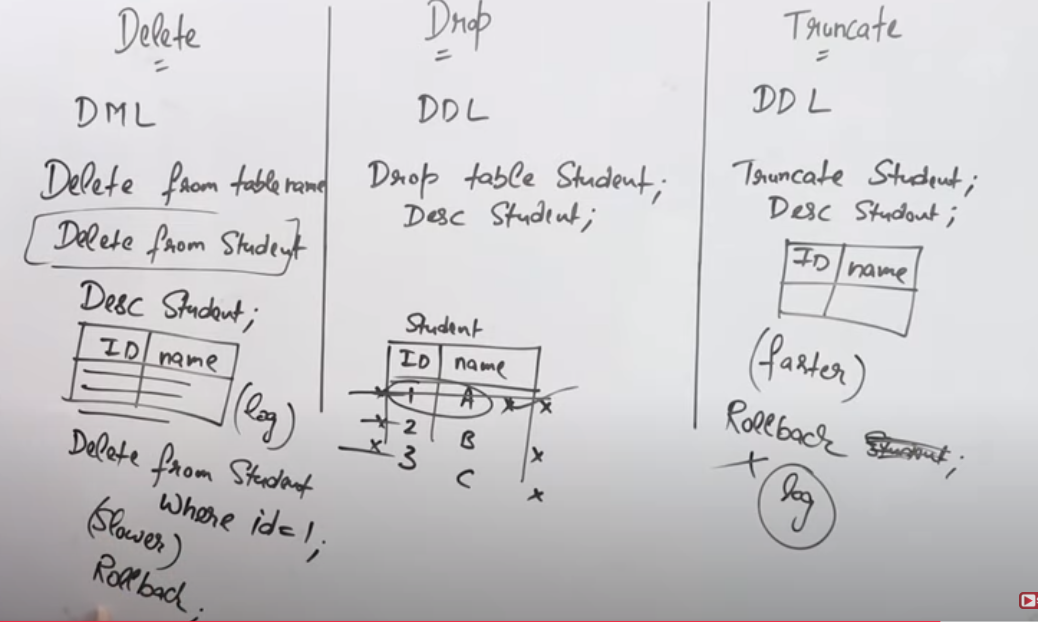 Delete
DML
Delete from table name
Delete from Student
Desc Student;
ID name
(log)
Delete from Student
where id=1;
(Slower)
Rollback;
Drop
DDL
Drop table Student;
Desc Student;
Student
ID name
1 A
2 B
3 C
Truncate
DDL
Truncate Student;
Desc Student;
ID name
(faster)
Rollback Student;
log